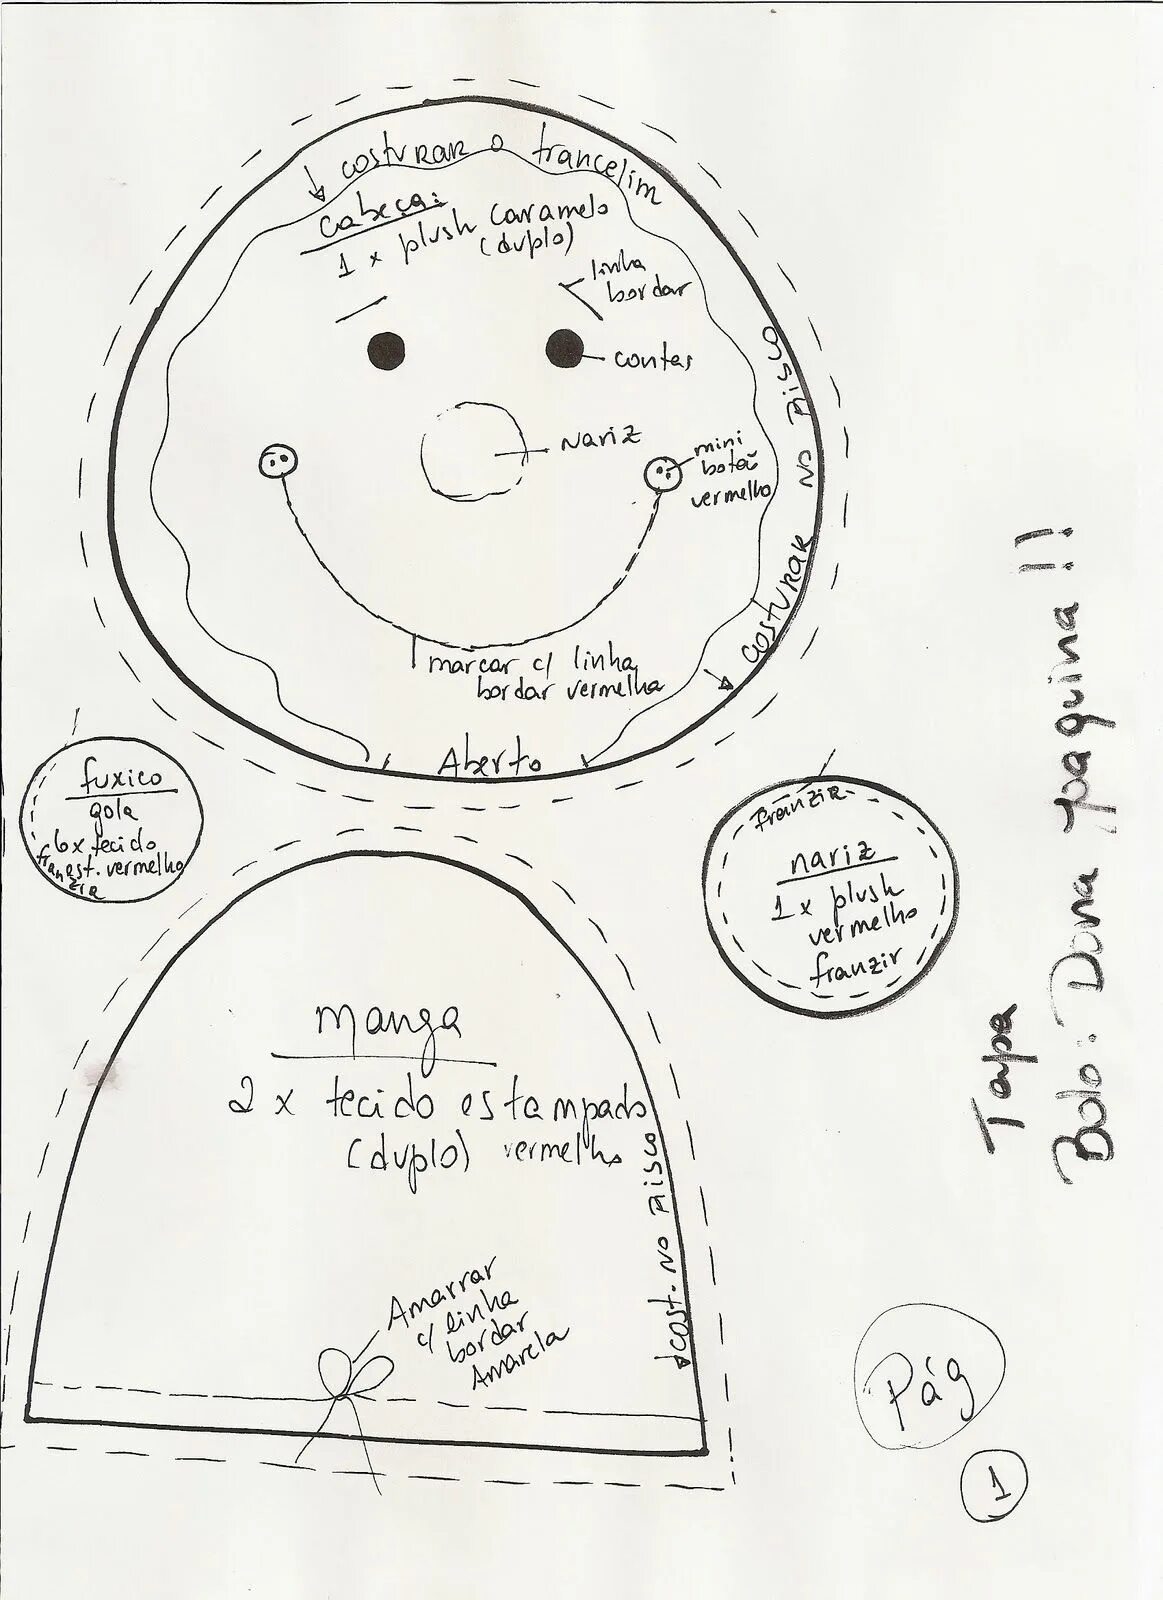 costurar o trancelim
cabeça:
1 x plush caramelo
(duplo)
linha
bordar
contas
nariz
mini
botão
vermelho
costurar no risco
marcar c/ linha
bordar vermelha
Aberto
fuxico
gola
6x tecido
est. vermelho
franzir
franzir
nariz
1 x plush
vermelho
franzir
manga
2 x tecido estampado
(duplo) vermelho
cost. no risco
Amarrar
c/ linha
bordar
Amarela
Tapa
Bolo: Dona
!!
Pág
1